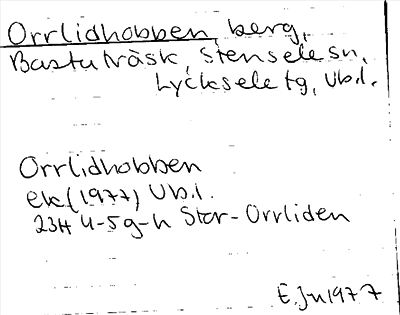 Orrlidhobben, berg,
Bastuträsk, Stensele sn,
Lycksele tg, Vb.l.
Orrlidhobben
ek (1977) Vb.l.
23H 4-5g-h Stor-Orrliden
E. Jn 1977